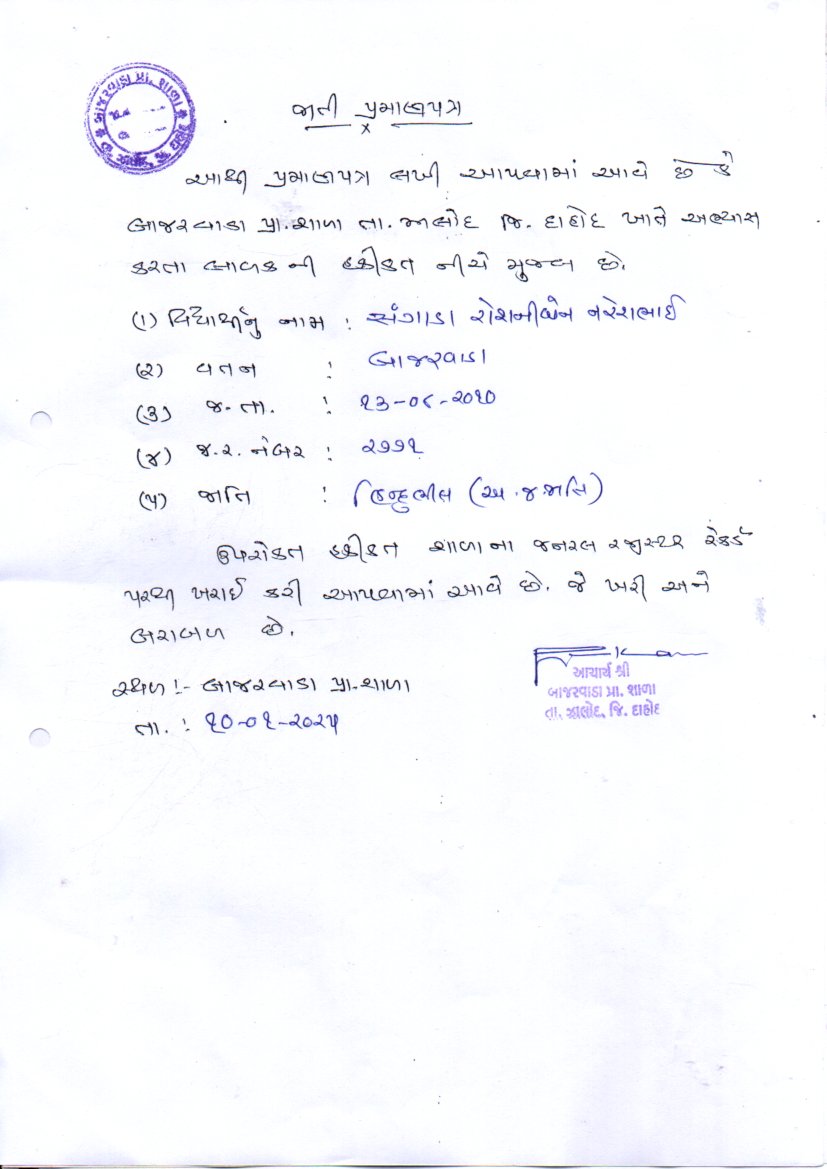 બાજરવાડા પ્રા. શાળા
જાતી પ્રમાણપત્ર
આથી પ્રમાણપત્ર લખી આપવામાં આવે છે કે
બાજરવાડા પ્રા.શાળા તા. ઝાલોદ જિ. દાહોદ ખાતે અભ્યાસ
કરતા બાળક ની હકીકત નીચે મુજબ છે.
(૧) વિદ્યાર્થીનું નામ : સંગાડા રોશનીબેન નરેશભાઈ
(૨) વતન : બાજરવાડા
(૩) જ.તા. : ૧૩-૦૮-૨૦૧૦
(૪) જ.ર. નંબર : ૨૭૭૧
(૫) જાતિ : હિન્દુભીલ (અ.જ જાતિ)
ઉપરોક્ત હકીકત શાળાના જનરલ રજીસ્ટર રેકર્ડ
પરથી ખરાઈ કરી આપવામાં આવે છે. જે ખરી અને
બરાબળ છે.
સ્થળ :- બાજરવાડા પ્રા.શાળા
તા. : ૧૦-૦૧-૨૦૨૫
આચાર્ય શ્રી
બાજરવાડા પ્રા. શાળા
તા. ઝાલોદ, જિ. દાહોદ